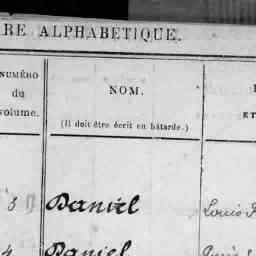 RE ALPHABÉTIQUE.
NUMÉRO
du
volume.
NOM.
(Il doit être écrit en bâtarde.)
ET
3 Daniel Louis
4 Daniel Louis